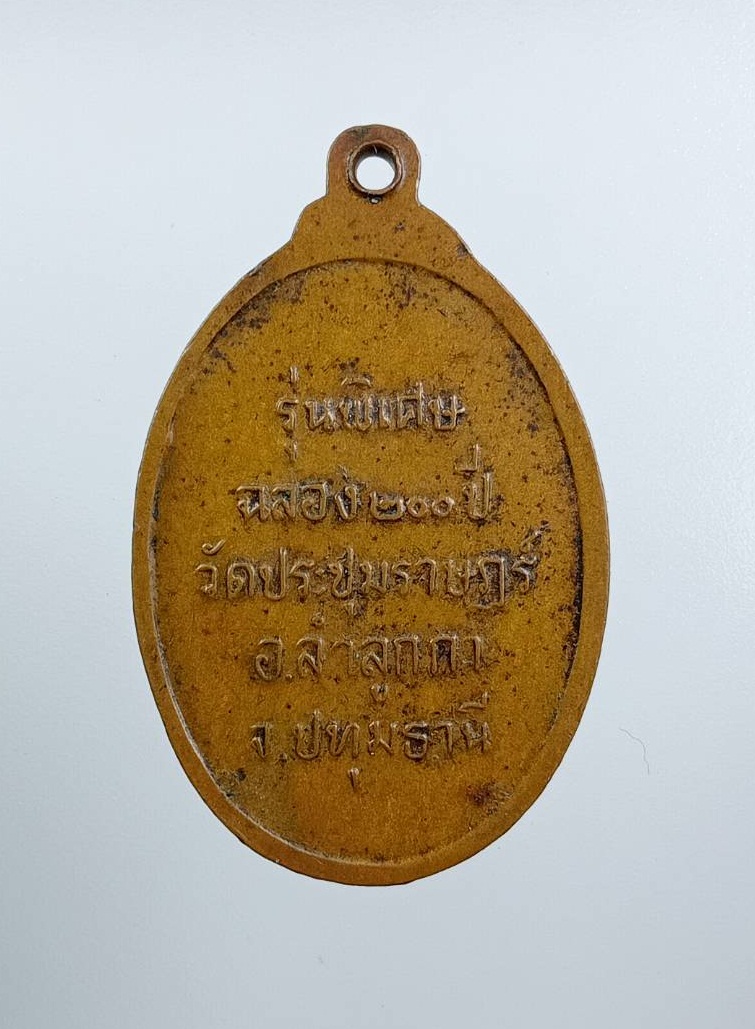 รุ่นพิเศษ
ฉลอง ๒๐๐ ปี
วัดประชุมราษฎร์
อ.ลำลูกกา
จ.ปทุมธานี